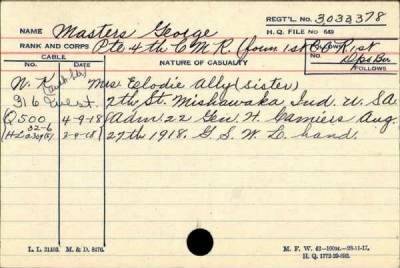 REGT'L. NO. 3033378
NAME Masters George H. Q. FILE NO 649
RANK AND CORPS Pte 4th C M R. (form 1st C O R 1st
CABLE NATURE OF CASUALTY FOLLOWS
NO. DATE FOLLOWS
N. K. Mrs Elodie Ally (sister)
316 West. 7th St. Mishawaka Ind. U. S.A.
Q500 4-9-18 Adm. 22 Gen. H. Camiers Aug.
2-9-18 27th 1918. G. S. W. L. hand.
L. L. 31103. M. & D. 8476. M. F. W. 42-100m.-28-11-17.
H. Q. 1772-39-893.